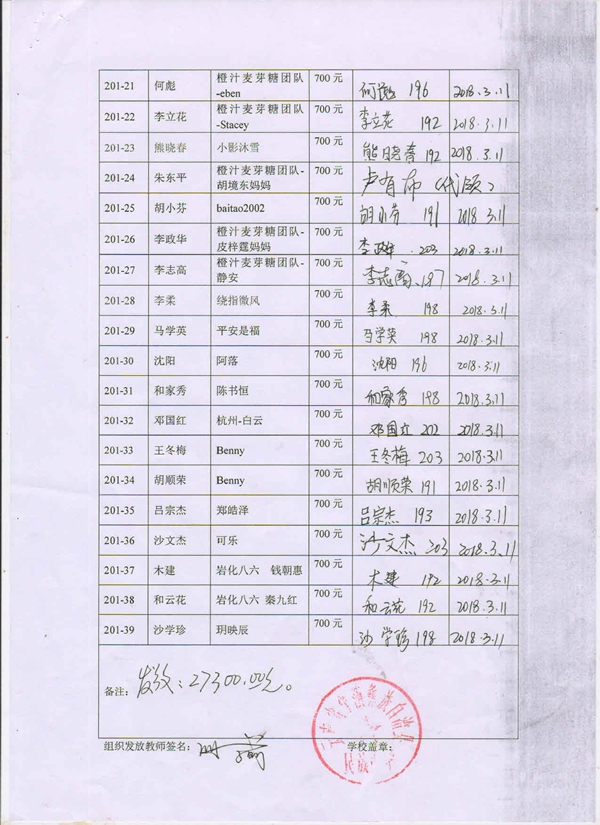 201-21 何彪 橙汁麦芽糖团队 700 元 何彪 196 2018.3.11
-eben
201-22 李立花 橙汁麦芽糖团队 700 元 李立花 192 2018.3.11
-Stacey
201-23 熊晓春 小影沐雪 700 元 熊晓春 192 2018.3.11
201-24 朱东平 橙汁麦芽糖团队- 700 元 卢有布(代领)
胡境东妈妈
201-25 胡小芬 baitao2002 700 元 胡小芬 191 2018.3.11
201-26 李政华 橙汁麦芽糖团队- 700 元 李政华 203 2018.3.11
皮梓霆妈妈
201-27 李志高 橙汁麦芽糖团队- 700 元 李志高 197 2018.3.11
静安
201-28 李柔 绕指微风 700 元 李柔 198 2018.3.11
201-29 马学英 平安是福 700 元 马学英 198 2018.3.11
201-30 沈阳 阿落 700 元 沈阳 196 2018.3.11
201-31 和家秀 陈书恒 700 元 和家秀 198 2018.3.11
201-32 邓国红 杭州-白云 700 元 邓国红 202 2018.3.11
201-33 王冬梅 Benny 700 元 王冬梅 203 2018.3.11
201-34 胡顺荣 Benny 700 元 胡顺荣 191 2018.3.11
201-35 吕宗杰 郑皓泽 700 元 吕宗杰 193 2018.3.11
201-36 沙文杰 可乐 700 元 沙文杰 203 2018.3.11
201-37 木建 岩化八六 钱朝惠 700 元 木建 192 2018.3.11
201-38 和云花 岩化八六 秦九红 700 元 和云花 192 2018.3.11
201-39 沙学珍 玥映辰 700 元 沙学珍 198 2018.3.11
备注: 发放:27300.00元。
组织发放教师签名: 学校盖章: